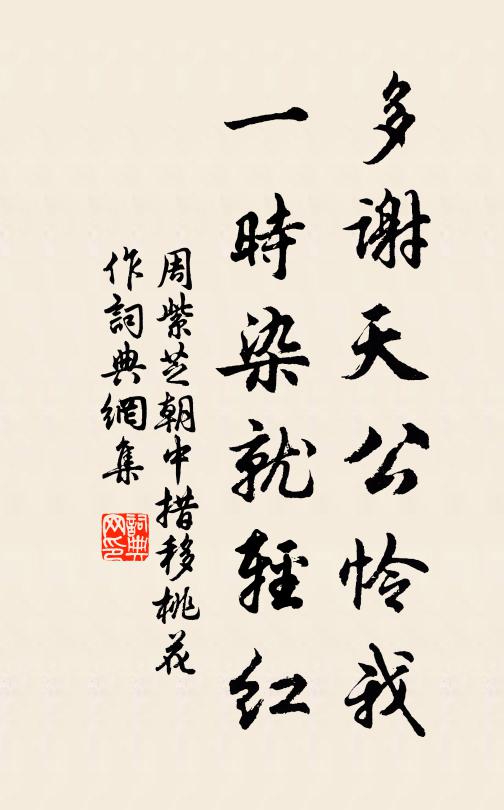 多谢天公怜我
一時染就輕红
周紫芝朝中措移桃花
作詞典網集
詞典网印